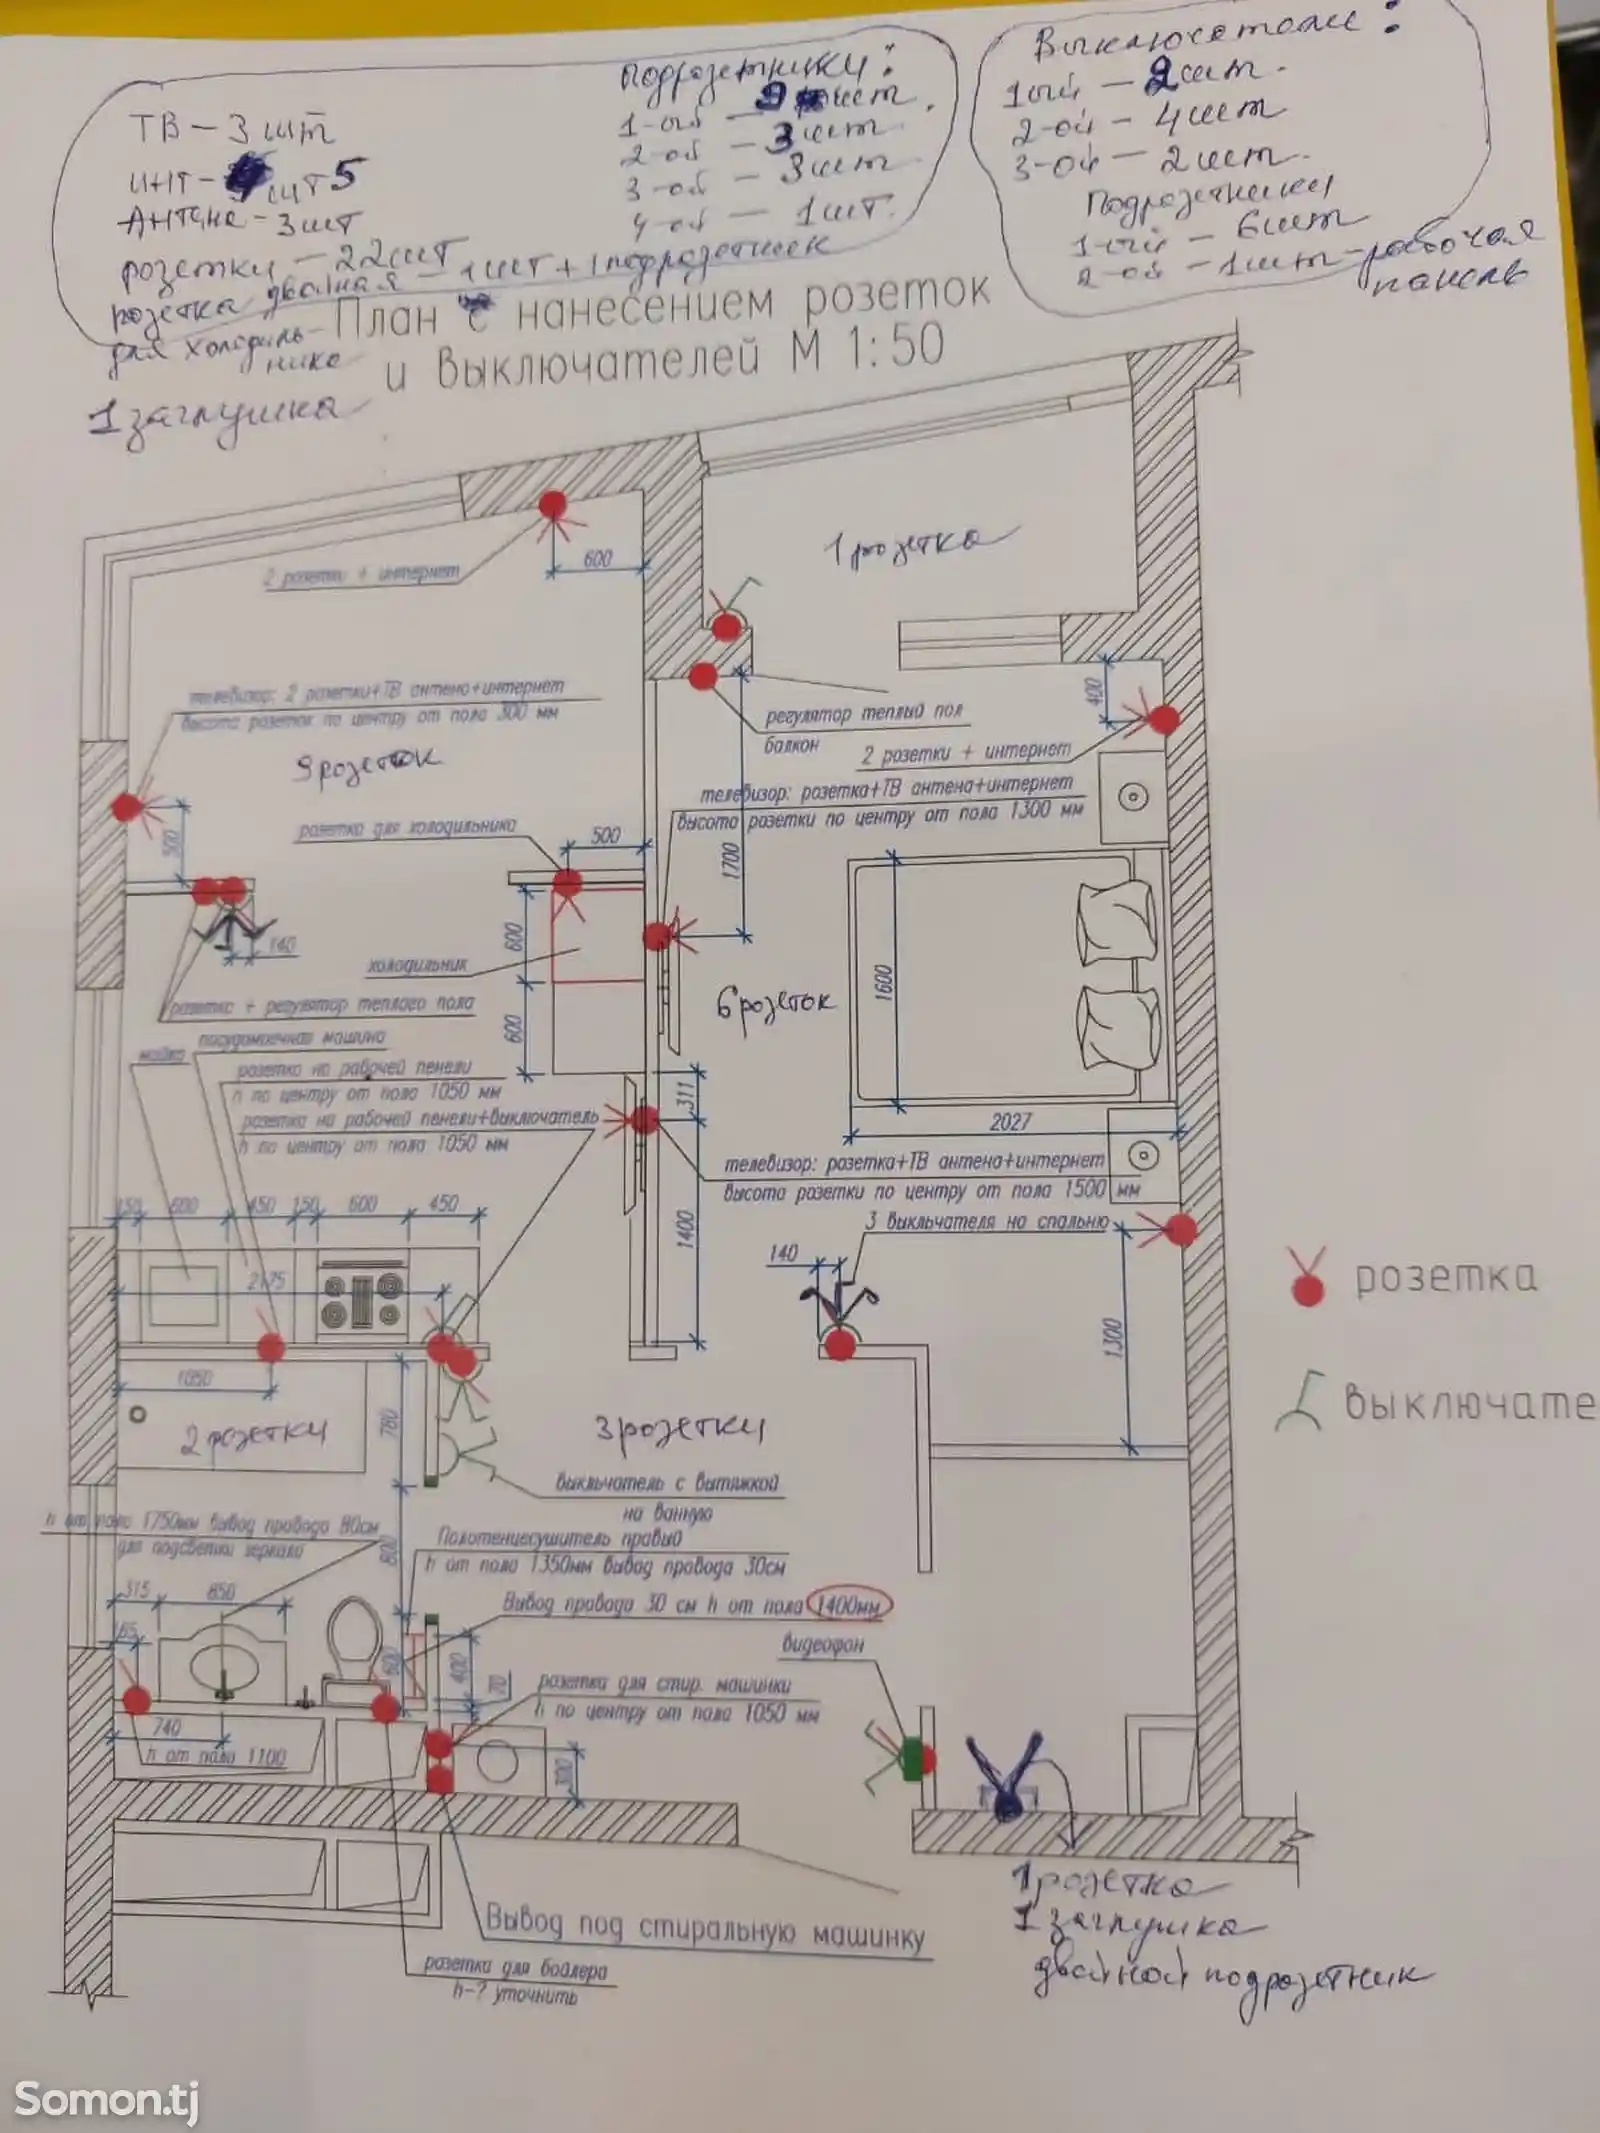 ТВ – 3 шт
ИНТ – шт 5
Антена – 3 шт
розетки – 22 шт
розетка двойная – 1 шт + 1 подрозетник
для холодиль-
ника
1 заглушка
Подрозетники:
1-ой – 9 шт.
2-ой – 3 шт.
3-ой – 3 шт
4-ой – 1 шт.
Выключетоли:
1ый – 2 шт.
2-ой – 4 шт
3-ой – 2 шт.
Подрозетники
1-ый – 6 шт
2-ой – 1 шт – рабочая
панель
План с нанесением розеток
и выключателей М 1:50
2 розетки + интернет
600
1 розетка
телевизор: 2 розетки+ТВ антена+интернет
высота розеток по центру от пола 300 мм
9 розеток
регулятор теплый пол
балкон
400
2 розетки + интернет
телевизор: розетка+ТВ антена+интернет
высота розетки по центру от пола 1300 мм
розетка для холодильника
500
500
1700
140
600
холодильник
6 розеток
1600
розетка + регулятор теплого пола
посудомоечная машина
мойка
600
розетка на рабочей пенели
h по центру от пола 1050 мм
розетка на рабочей пенели+выключатель
h по центру от пола 1050 мм
311
2027
телевизор: розетка+ТВ антена+интернет
высота розетки по центру от пола 1500 мм
150 600 450 150 600 450
1400
3 выкльчателя на спальню
140
2175
1300
розетка
1050
780
2 розетки
3 розетки
выключате
выкльчатель с вытяжкой
на ванную
h от пола 1750мм вывод провода 80см
для подсветки зеркала
800
Полотенцесушитель правый
h от пола 1350мм вывод провода 30см
315 850
Вывод провода 30 см h от пола 1400мм
65
600
400
70
видеофон
розетка для стир. машинки
h по центру от пола 1050 мм
740
h от пола 1100
300
1 розетка
1 заглушка
двойной подрозетник
Вывод под стиральную машинку
розетка для боалера
h-? уточнить
Somon.tj